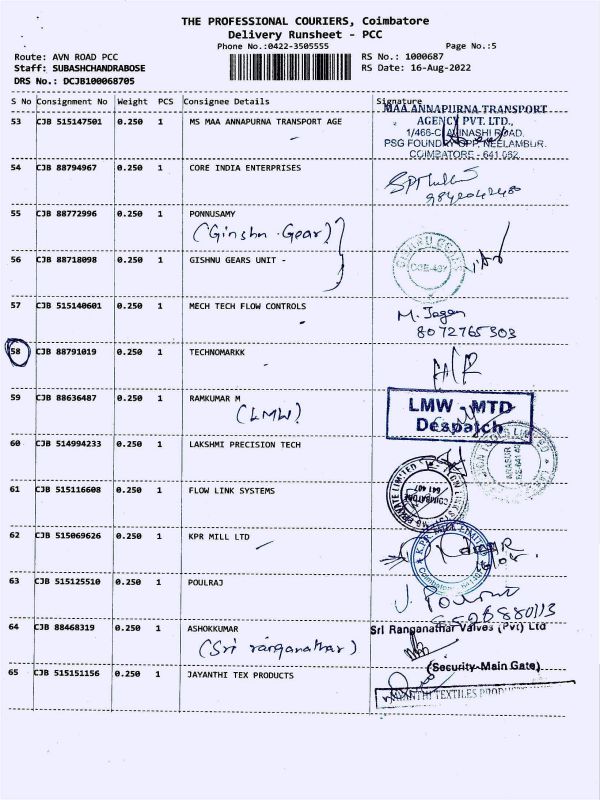 THE PROFESSIONAL COURIERS, Coimbatore
Delivery Runsheet - PCC
Phone No.:0422-3505555 Page No.:5
Route: AVN ROAD PCC RS No.: 1000687
Staff: SUBASHCHANDRABOSE RS Date: 16-Aug-2022
DRS No.: DCJB100068705
S No Consignment No Weight PCS Consignee Details Signature
53 CJB 515147501 0.250 1 MS MAA ANNAPURNA TRANSPORT AGE
MAA ANNAPURNA TRANSPORT
AGENCY PVT. LTD.,
1/466-C AVINASHI ROAD.
PSG FOUNDRY OPP, NEELAMBUR.
COIMBATORE - 641 062.
54 CJB 88794967 0.250 1 CORE INDIA ENTERPRISES
9842042480
55 CJB 88772996 0.250 1 PONNUSAMY
(Ginshu Gear)
56 CJB 88718098 0.250 1 GISHNU GEARS UNIT -
57 CJB 515140601 0.250 1 MECH TECH FLOW CONTROLS
M. Jagan
8072765303
58 CJB 88791019 0.250 1 TECHNOMARKK
59 CJB 88636487 0.250 1 RAMKUMAR M
(LMW)
LMW - MTD
Despatch
60 CJB 514994233 0.250 1 LAKSHMI PRECISION TECH
61 CJB 515116608 0.250 1 FLOW LINK SYSTEMS
62 CJB 515069626 0.250 1 KPR MILL LTD
63 CJB 515125510 0.250 1 POULRAJ
64 CJB 88468319 0.250 1 ASHOKKUMAR
(Sri ranganathar)
Sri Ranganathar Valves (Pvt) Ltd
(Security-Main Gate)
65 CJB 515151156 0.250 1 JAYANTHI TEX PRODUCTS